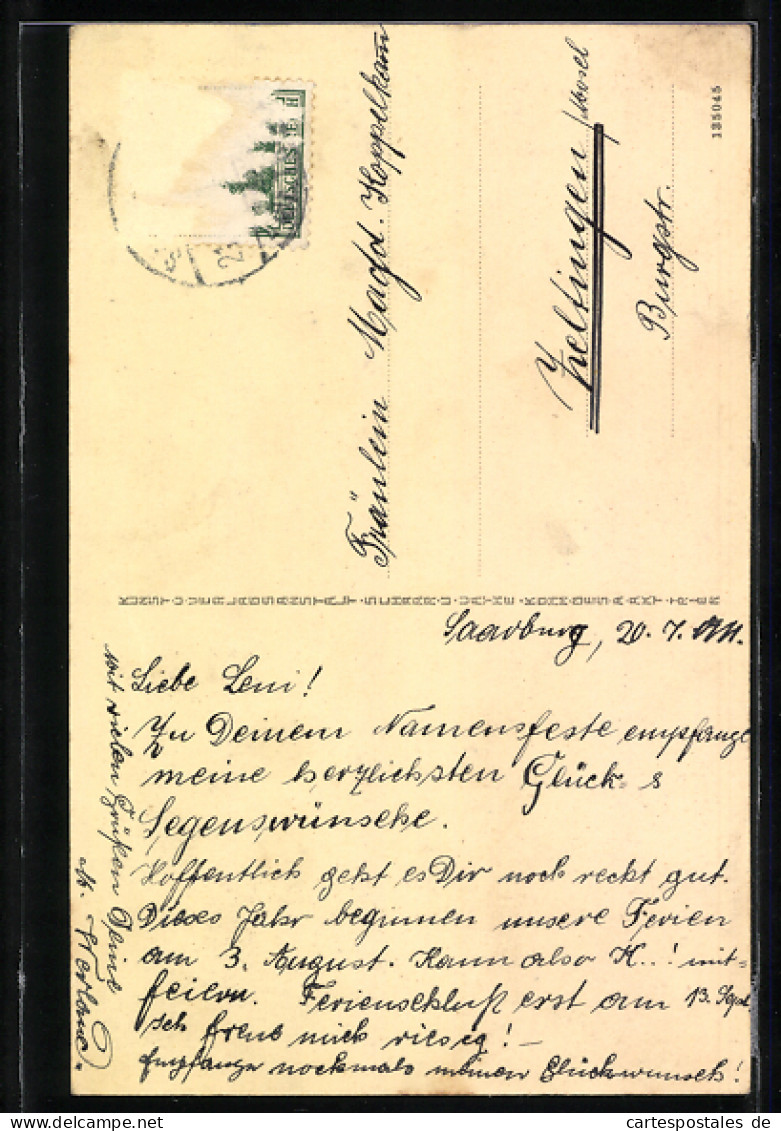 135045
Fräulein Magd. Koppelkam
Zeltingen /Mosel
Burgstr.
DEUTSCHES
Saarburg, 20. 7.
Liebe Leni!
Zu Deinem Namensfeste empfange
meine herzlichsten Glück- &
Segenswünsche.
Hoffentlich geht es Dir noch recht gut.
Dieses Jahr beginnen unsere Ferien
am 3. August. Kann also K..! mit-
feiern. Ferienschluß erst am 13. Sept.
Ich freue mich riesig! –
Empfange nochmals meinen Glückwunsch!
mit vielen Grüßen Deine
M.
cartespostales de